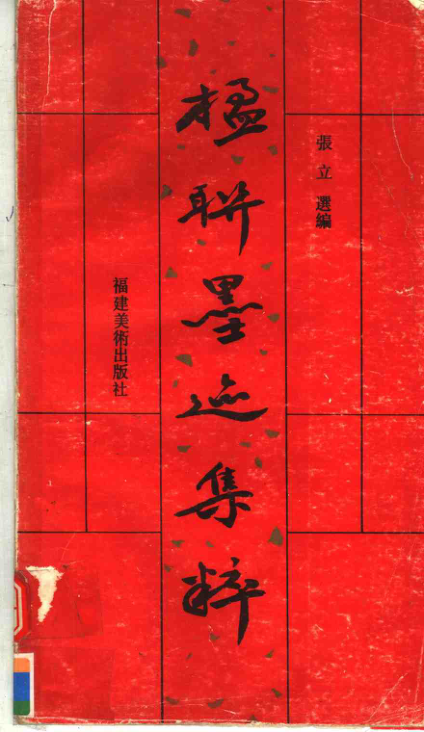 張立 選編
楹聯墨迹集粹
福建美術出版社